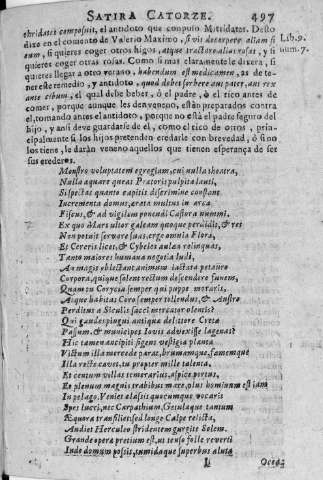 SATIRA CATORZE. 497
thridates composuit, el antidoto que conpuso Mitridates. Desto
dixo en el comento de Valerio Maximo, si vis decerpere aliam fi Lib.9.
cum, si quieres coger otros higos, atque tractare alias rosas, y si num.7.
quieres coger otras rosas. Como si mas claramente le dixera, si
quieres llegar a otro verano, habendum est medicamen, as de te-
ner este remedio, y antidoto, quod debet sorbere aut pater, aut rex
ante cibum, el qual debe beber, ò el padre, ò el rico antes de
comer, porque aunque les den veneno, estàn preparados contra
el, tomando antes el antidoto, porque no està el padre seguro del
hijo, y ansi deve guardarse de el, como el rico de otros, prin-
cipalmente si los hijos pretenden eredarle con brevedad, ò si no
los tiene, le daràn veneno aquellos que tienen esperança de ser
sus erederos.
Monstro voluptatem egregiam, cui nulla theatra,
Nulla aquare queas Pratoris pulpita lauti,
Si spectas quanto capitis discrimine constent
Incrementa domus, arata multus in arca
Fiscus, & ad vigilem ponendi Castora nummi.
Ex quo Mars ultor galeam quoque perdidit, & res
Non potuit servare suas, ergo omnia Flora,
Et Cereris licet, & Cybeles aulæa relinquas,
Tanto maiores humana negotia ludi,
An magis oblectant animum iactata petauro
Corpora, quique solent rectum descendere funem,
Quam tu Corycia semper qui puppe moraris,
Atque habitas Coro semper tollendus, & Austro
Perditus a Siculis sacci mercator olentis?
Qui gaudes pingui antiqua de littore Creta
Passum, & municipes Iovis advexisse lagenas?
Hic tamen ancipiti figens vestigia planta
Victum illa mercede parat, brumamque, famemque
Illa recte cavet, tu propter mille talenta,
Et centum villas temerarius, aspice portus,
Et plenum magnis trabibus mare, plus hominum est iam
In pelago, Veniet classis quocumque vocaris
Spes lucri, nec Carpathium, Getulaque tantum
Æquora transiliet, sed longe Calpe relicta,
Audiet Herculeo stridentem gurgite Solem.
Grande opera pretium est, ut tenso folle reverti
Inde domum possis, tumidaque superbus aluta
Ocea